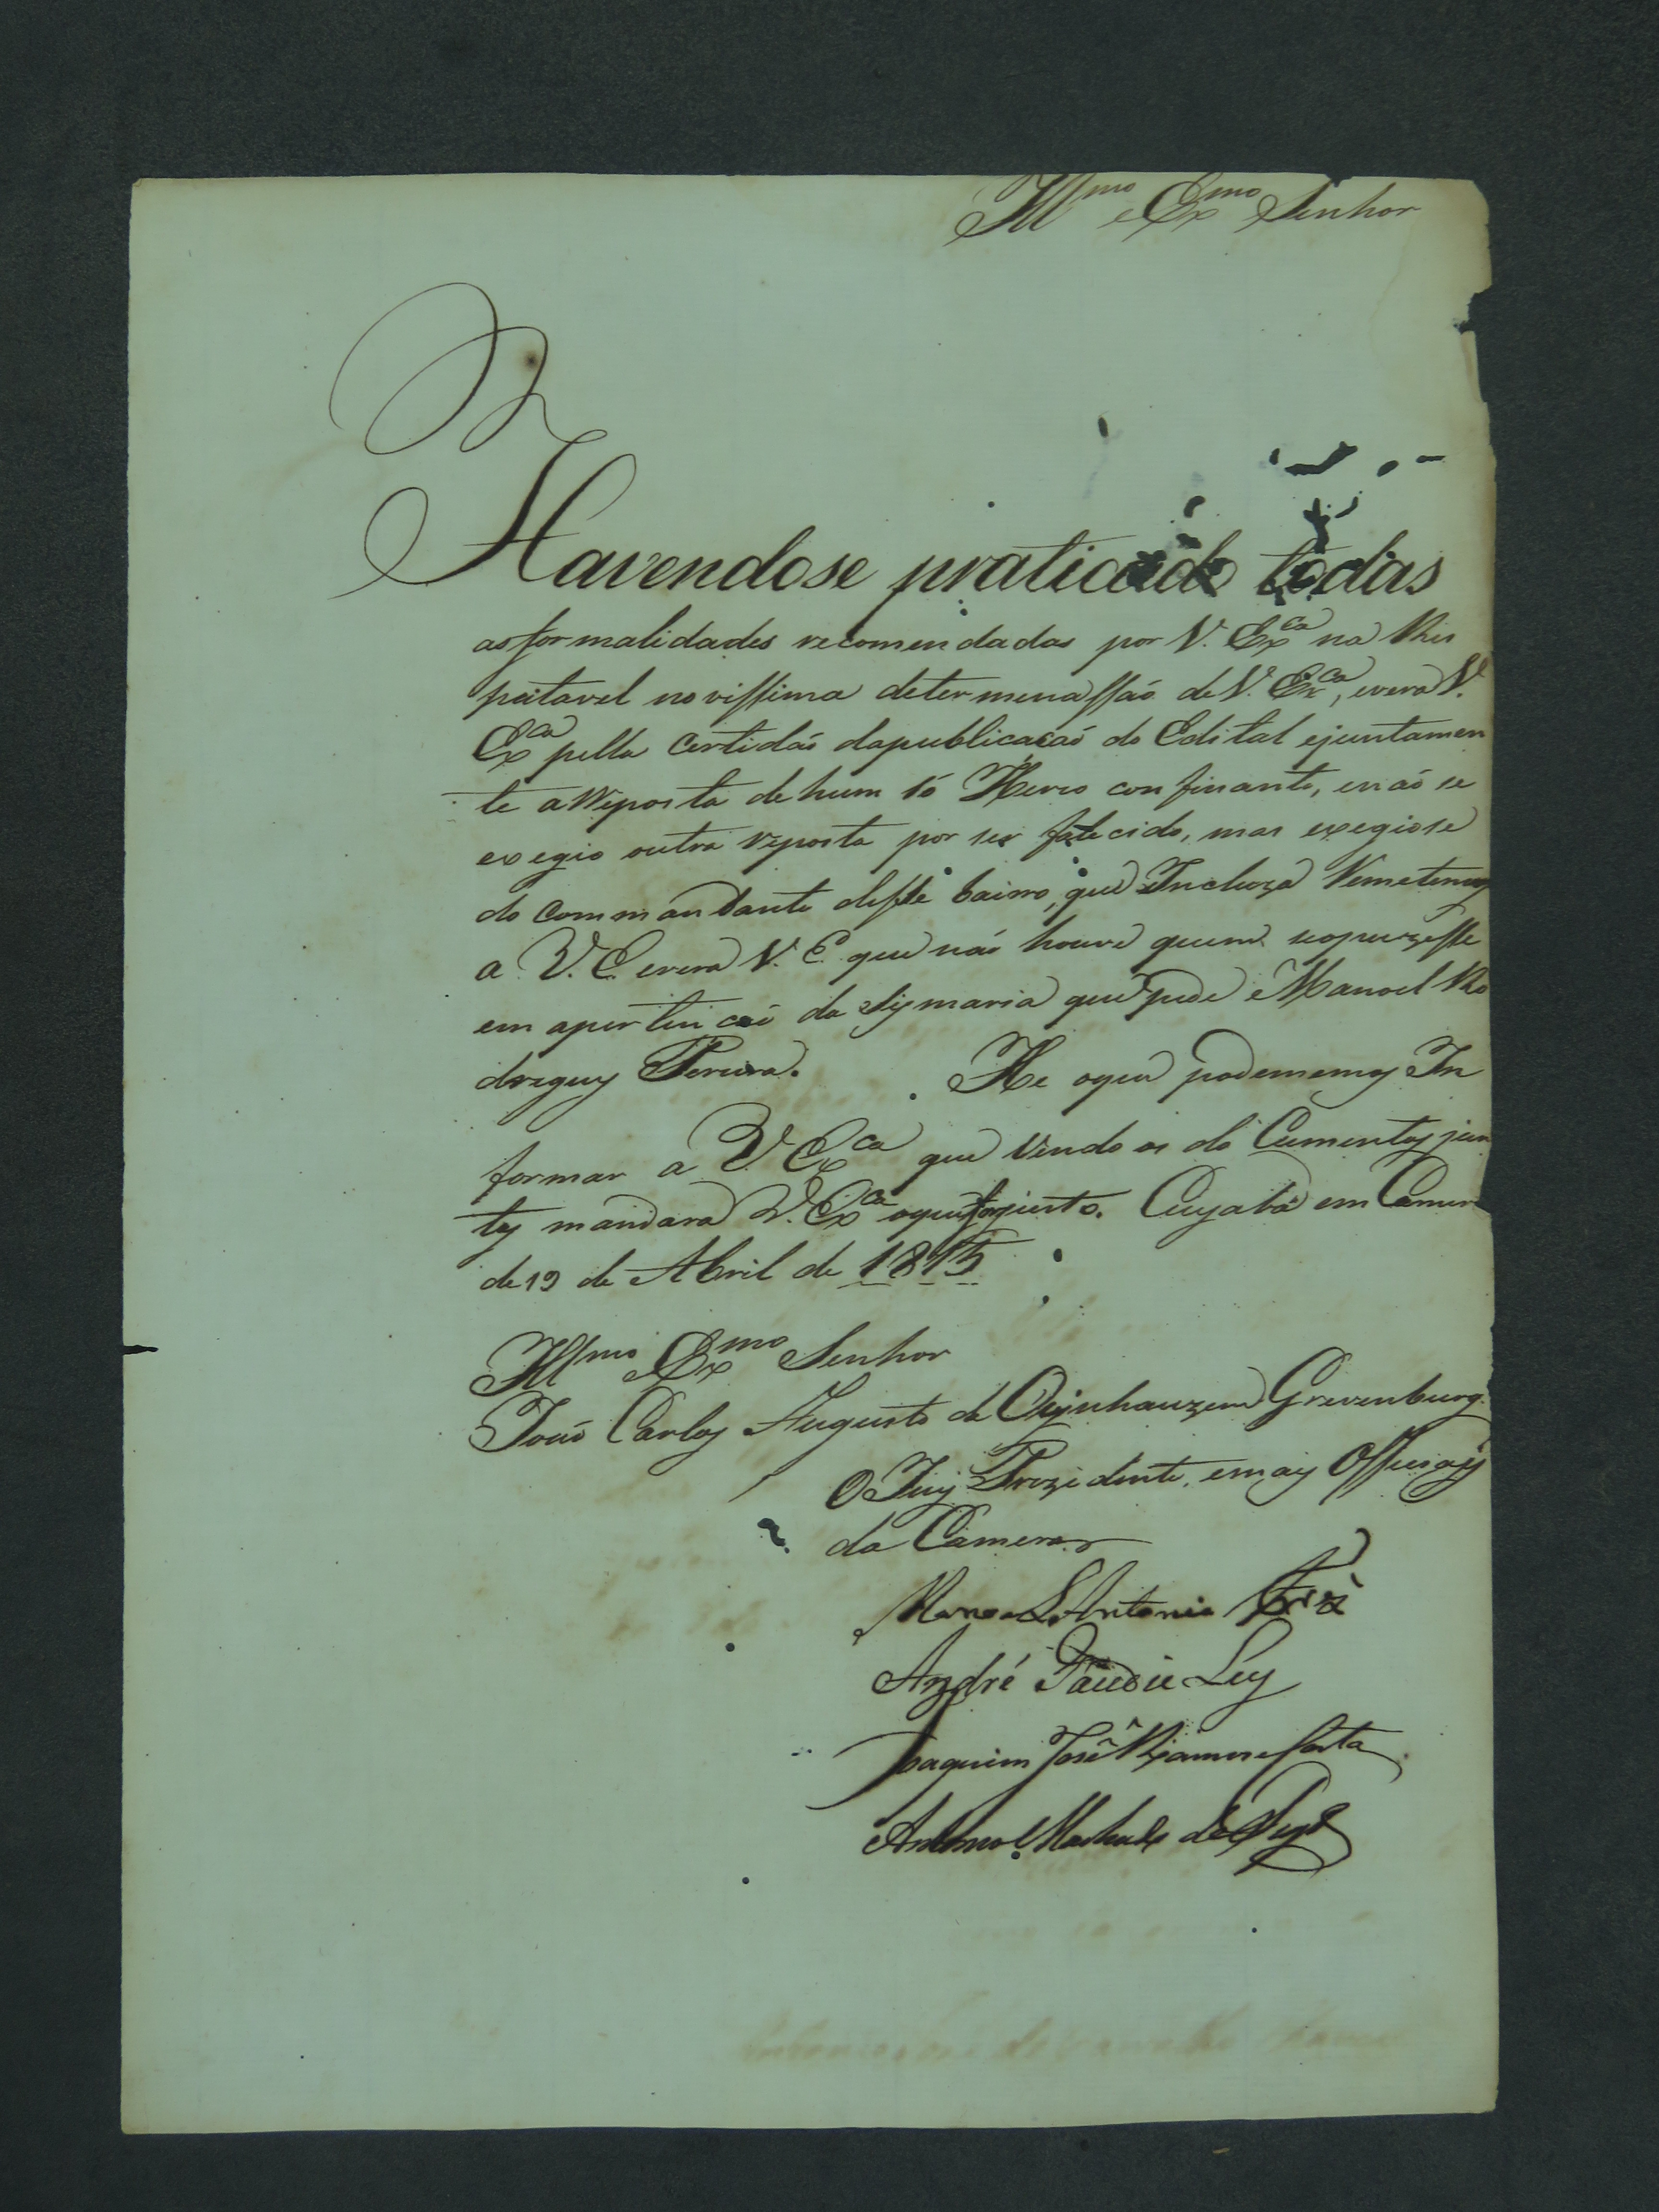 Illmo e Exmo Senhor
Havendose praticado todas
as formalidades recomendadas por V. Exca na Res
peitavel novissima determenassaõ de V. Exca, evera V.
Exca pella Certidaõ dapublicasaõ do Edital ejuntamen
te a Reposta dehum só Hereo confinante, enaõ se
exegio outra reposta por ser falecido, mas exegiose
do Commandante desste bairro, que Incluza Remetemos
a V. E. evera V. E. que naõ houve quem seopuzésse
em apertencaõ da Sysmaria que pede Manoel Ro
drigues Pereira. He oque podememos In
formar a V. Exca que Vendo os do Cumentos jun
tos mandara V. Exca oquefor justo. Cuyabá em Camera
de 19 de Abril de 1815
Illmo e Exmo Senhor
Joaõ Carlos Augusto de Oeynhauzen Grevenburg.
O Juiz Prezidente, emais Officiaes
da Camera
Manoel Antonio
André Gaudie Ley
Joaquim José Ramos e Costa
Antonio Machado de